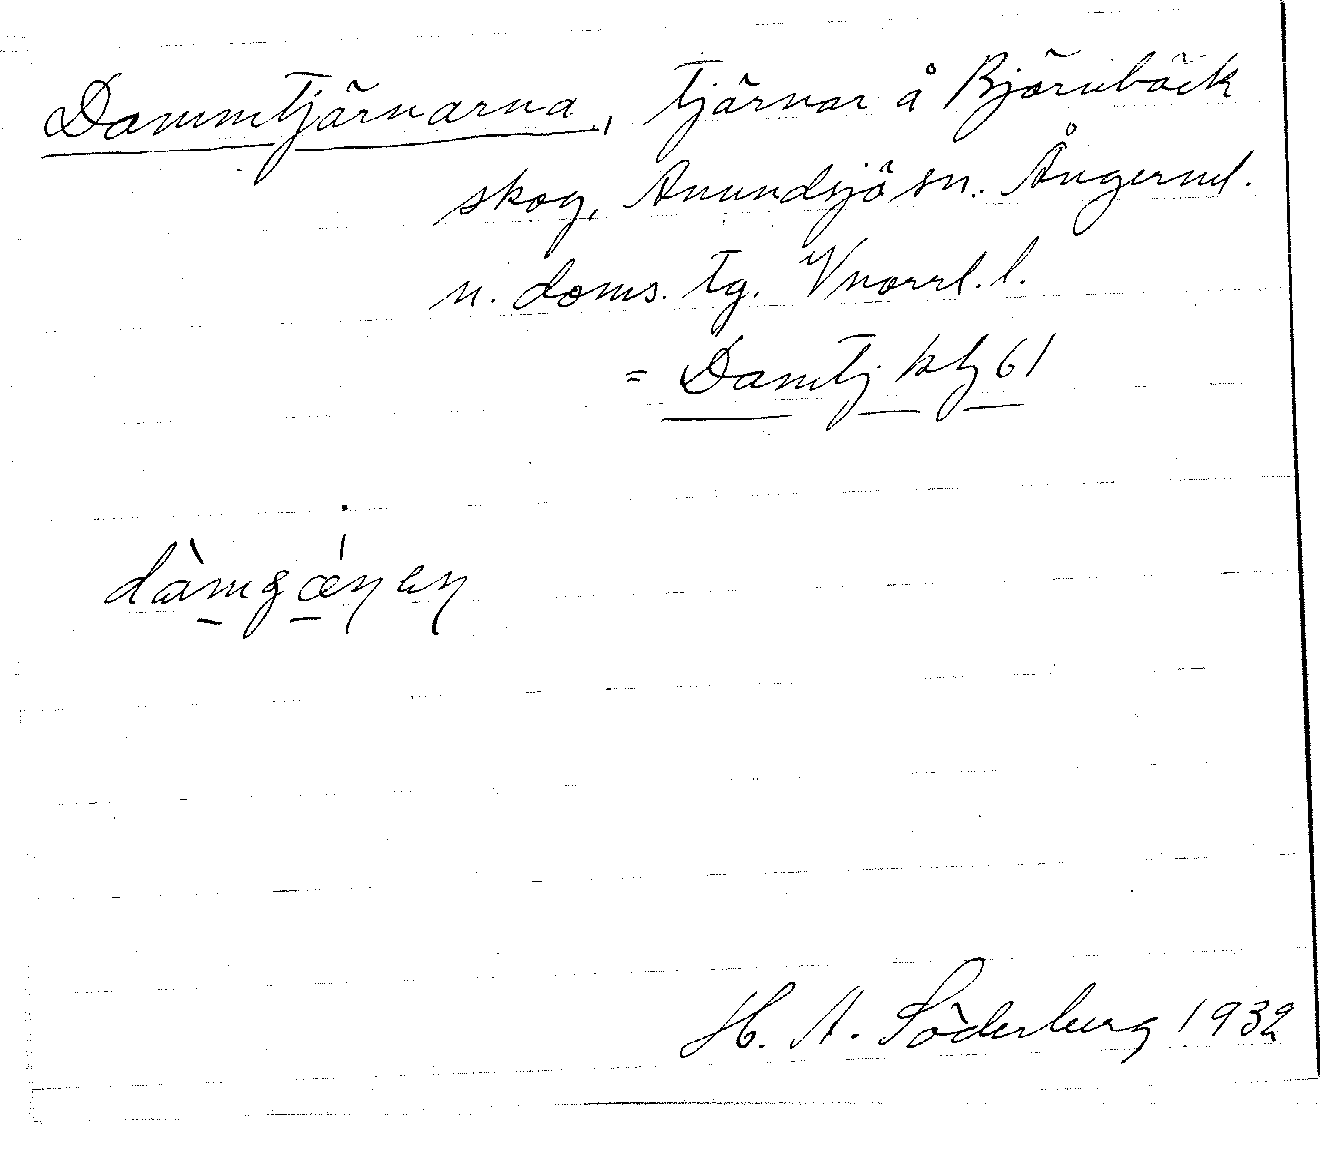 Dammtjärnarna, tjärnar å Björnbäck
skog, Anundsjö sn. Ångerml.
n. doms. tg. Vnorrl. l.
= Damtj kbl 61
dàmgǽŋeŋ
H. A. Söderberg 1932